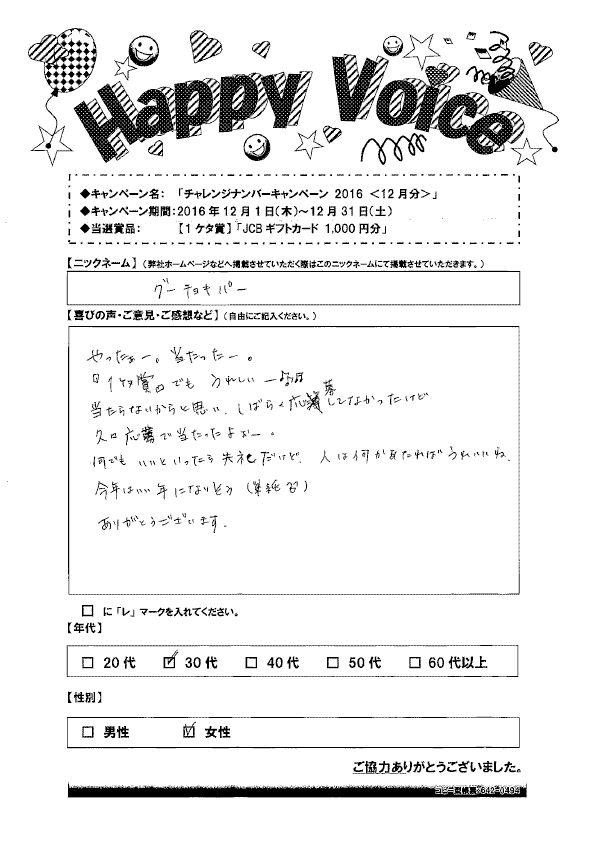 Happy Voice
◆キャンペーン名： 「チャレンジナンバーキャンペーン 2016 ＜12月分＞」
◆キャンペーン期間：2016年12月1日（木）～12月31日（土）
◆当選賞品： 【1ケタ賞】「JCBギフトカード 1,000円分」
【ニックネーム】（弊社ホームページなどへ掲載させていただく際はこのニックネームにて掲載させていただきます。）
グーチョキパー
【喜びの声・ご意見・ご感想など】（自由にご記入ください。）
やったぁー。当たったー。
『1ケタ賞』でも うれしいー♪♪
当たらないからと思い、しばらく応募してなかったけど
久々応募で当たったよぉー。
何でもいいといったら失礼だけど、人は何かあたればうれいいね。
今年はいい年になりそう（単純）
ありがとうございます。
□ に「レ」マークを入れてください。
【年代】
□ 20代 ☑ 30代 □ 40代 □ 50代 □ 60代以上
【性別】
□ 男性 ☑ 女性
ご協力ありがとうございました。